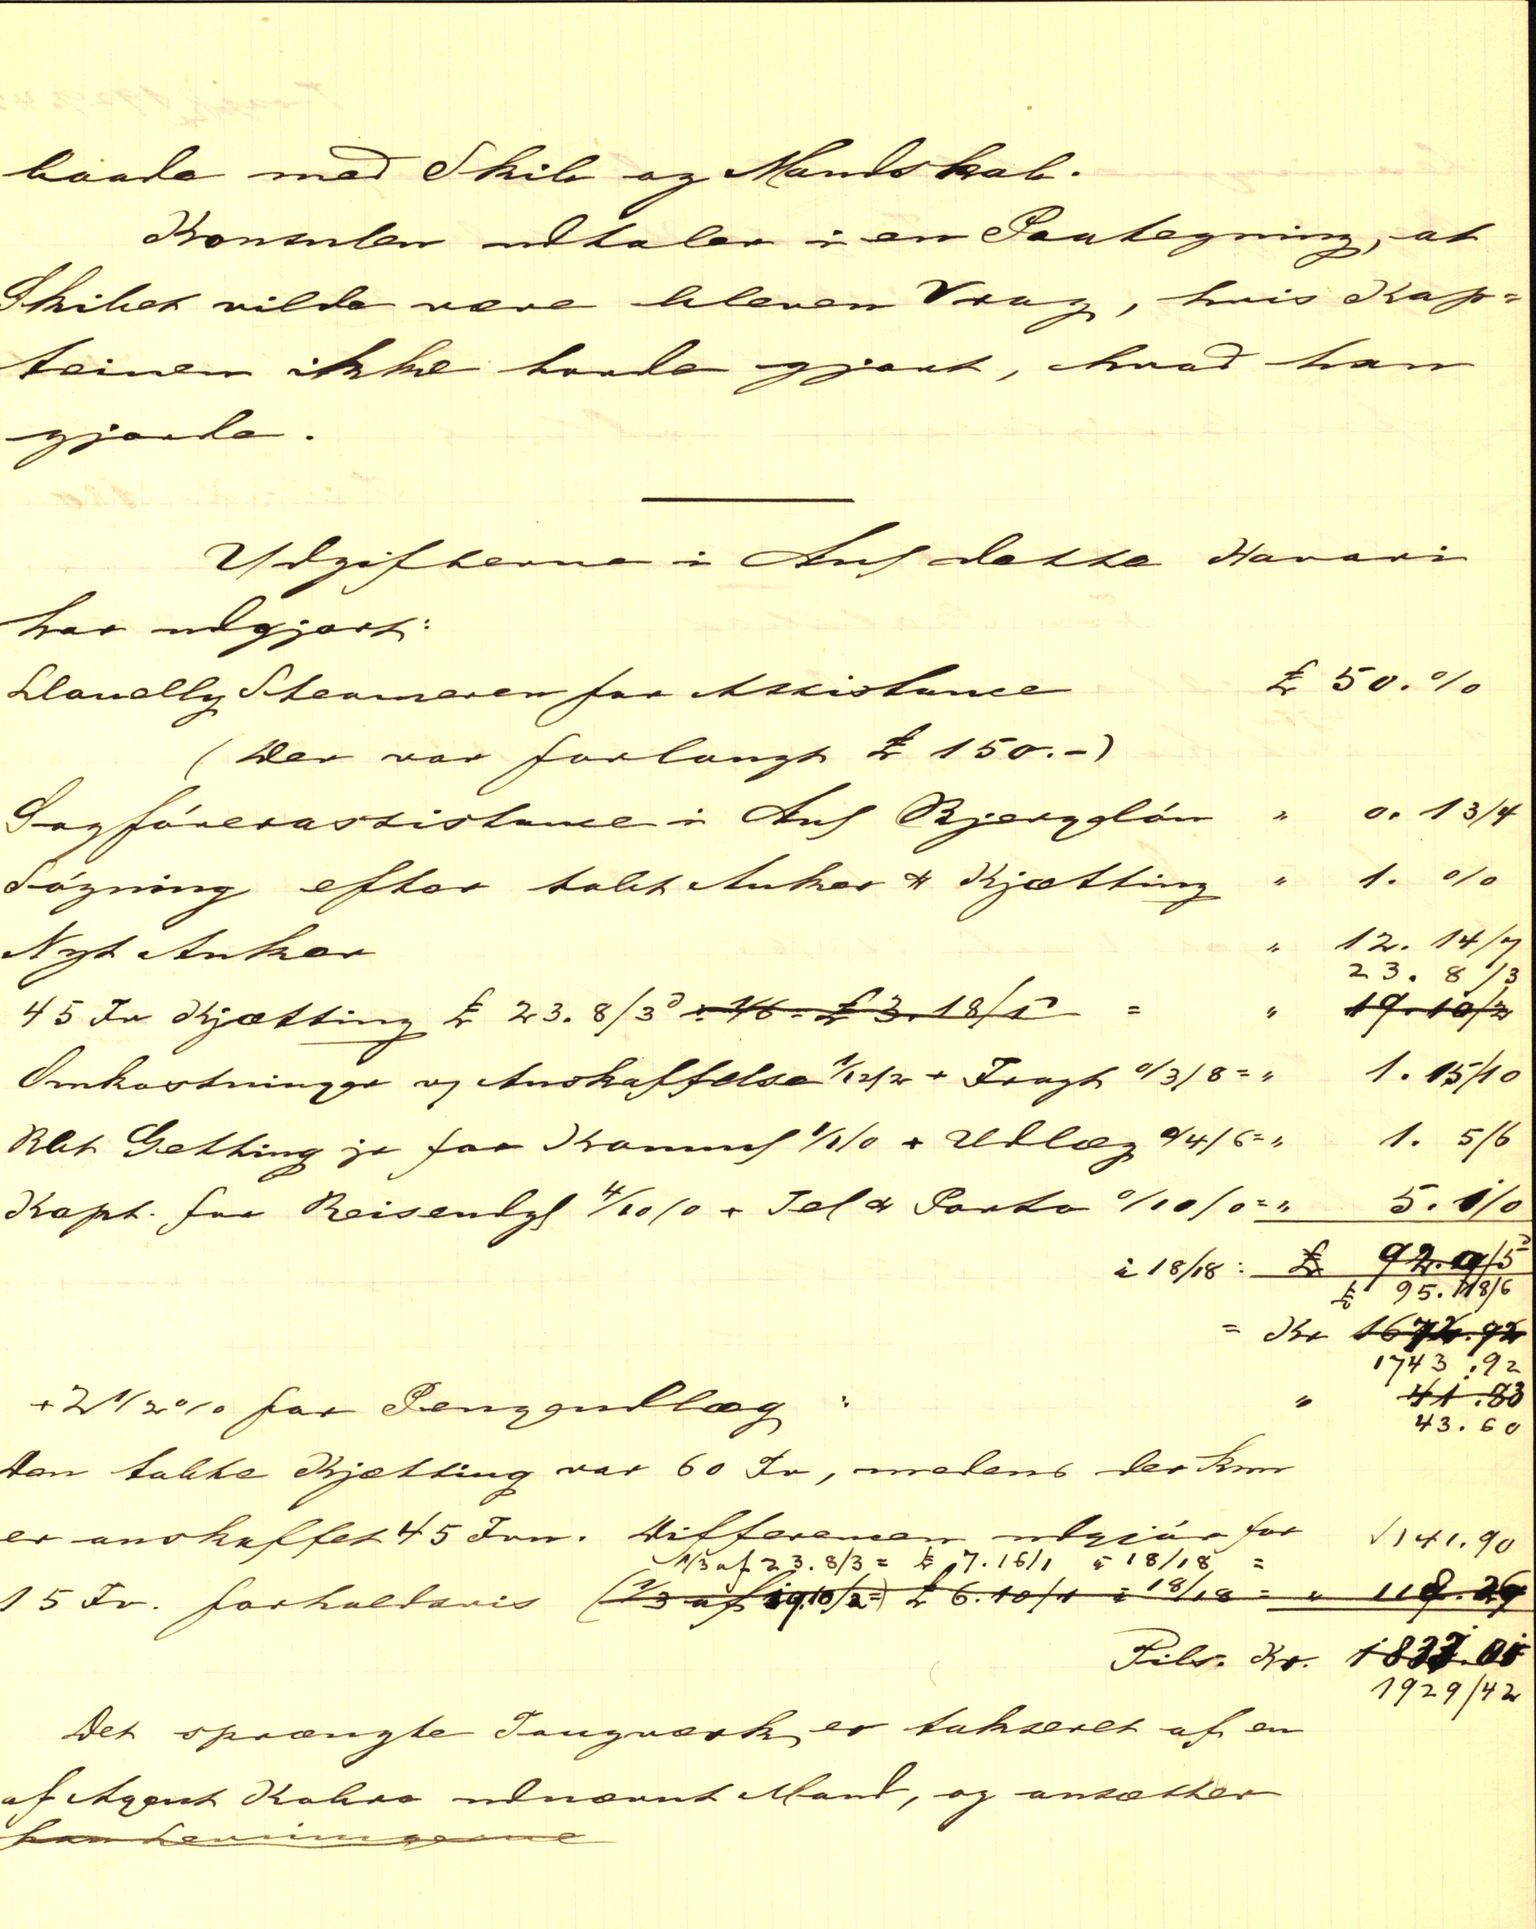 baade med Skib og Mandskab.
Konsulen udtaler i en Paategning, at
Skibet vilde være bleven Vrag, hvis Kap=
teinen ikke havde gjort, hvad han
gjorde.
Udgifterne i Anl dette Havari
har udgjort:
Llanelly Steameren for Assistance £ 50.%
(Der var forlangt £ 150.-)
Sagførerassistance i Anl Bjergeløn " 0. 13/4
Søgning efter tabt Anker & Kjætting " 1. %
Nyt Anker " 12. 14/7
23. 8/3
45 Fv Kjætting £ 23. 8/3d = " 19. 10/2
Omkostninger og Anskaffelse 1/12/2 + Fragt 0/3/8 = " 1. 15/10
Rbt Getting jr for Kommsl 1/1/0 + Udlæg 0/4/6 = " 1. 5/6
Kapt. for Reiseudgl 4/10/0 + Tel & Porto 0/10/0 = " 5. 1/0
à 18/18: £ 92.
£ 95. 18/6
= Kr
1743.92
+ 2 1/2 % for Pengeudlæg : " 41.83
43.60
Den tabte Kjætting var 60 Fv, medens der kun
er anskaffet 45 Fvn. Differencen udgjør for 141.90
1/3 af 23. 8/3 = £ 7. 16/1 à 18/18 =
15 Fv. forholdsvis (1/3 af 19.10/2=) £ 6.10/1 à 18/18 = "
Tils. Kr.
1929/42
Det sprængte Tougværk er takseret af en
af Agent Kahrs udnævnt Mand, og ansætter